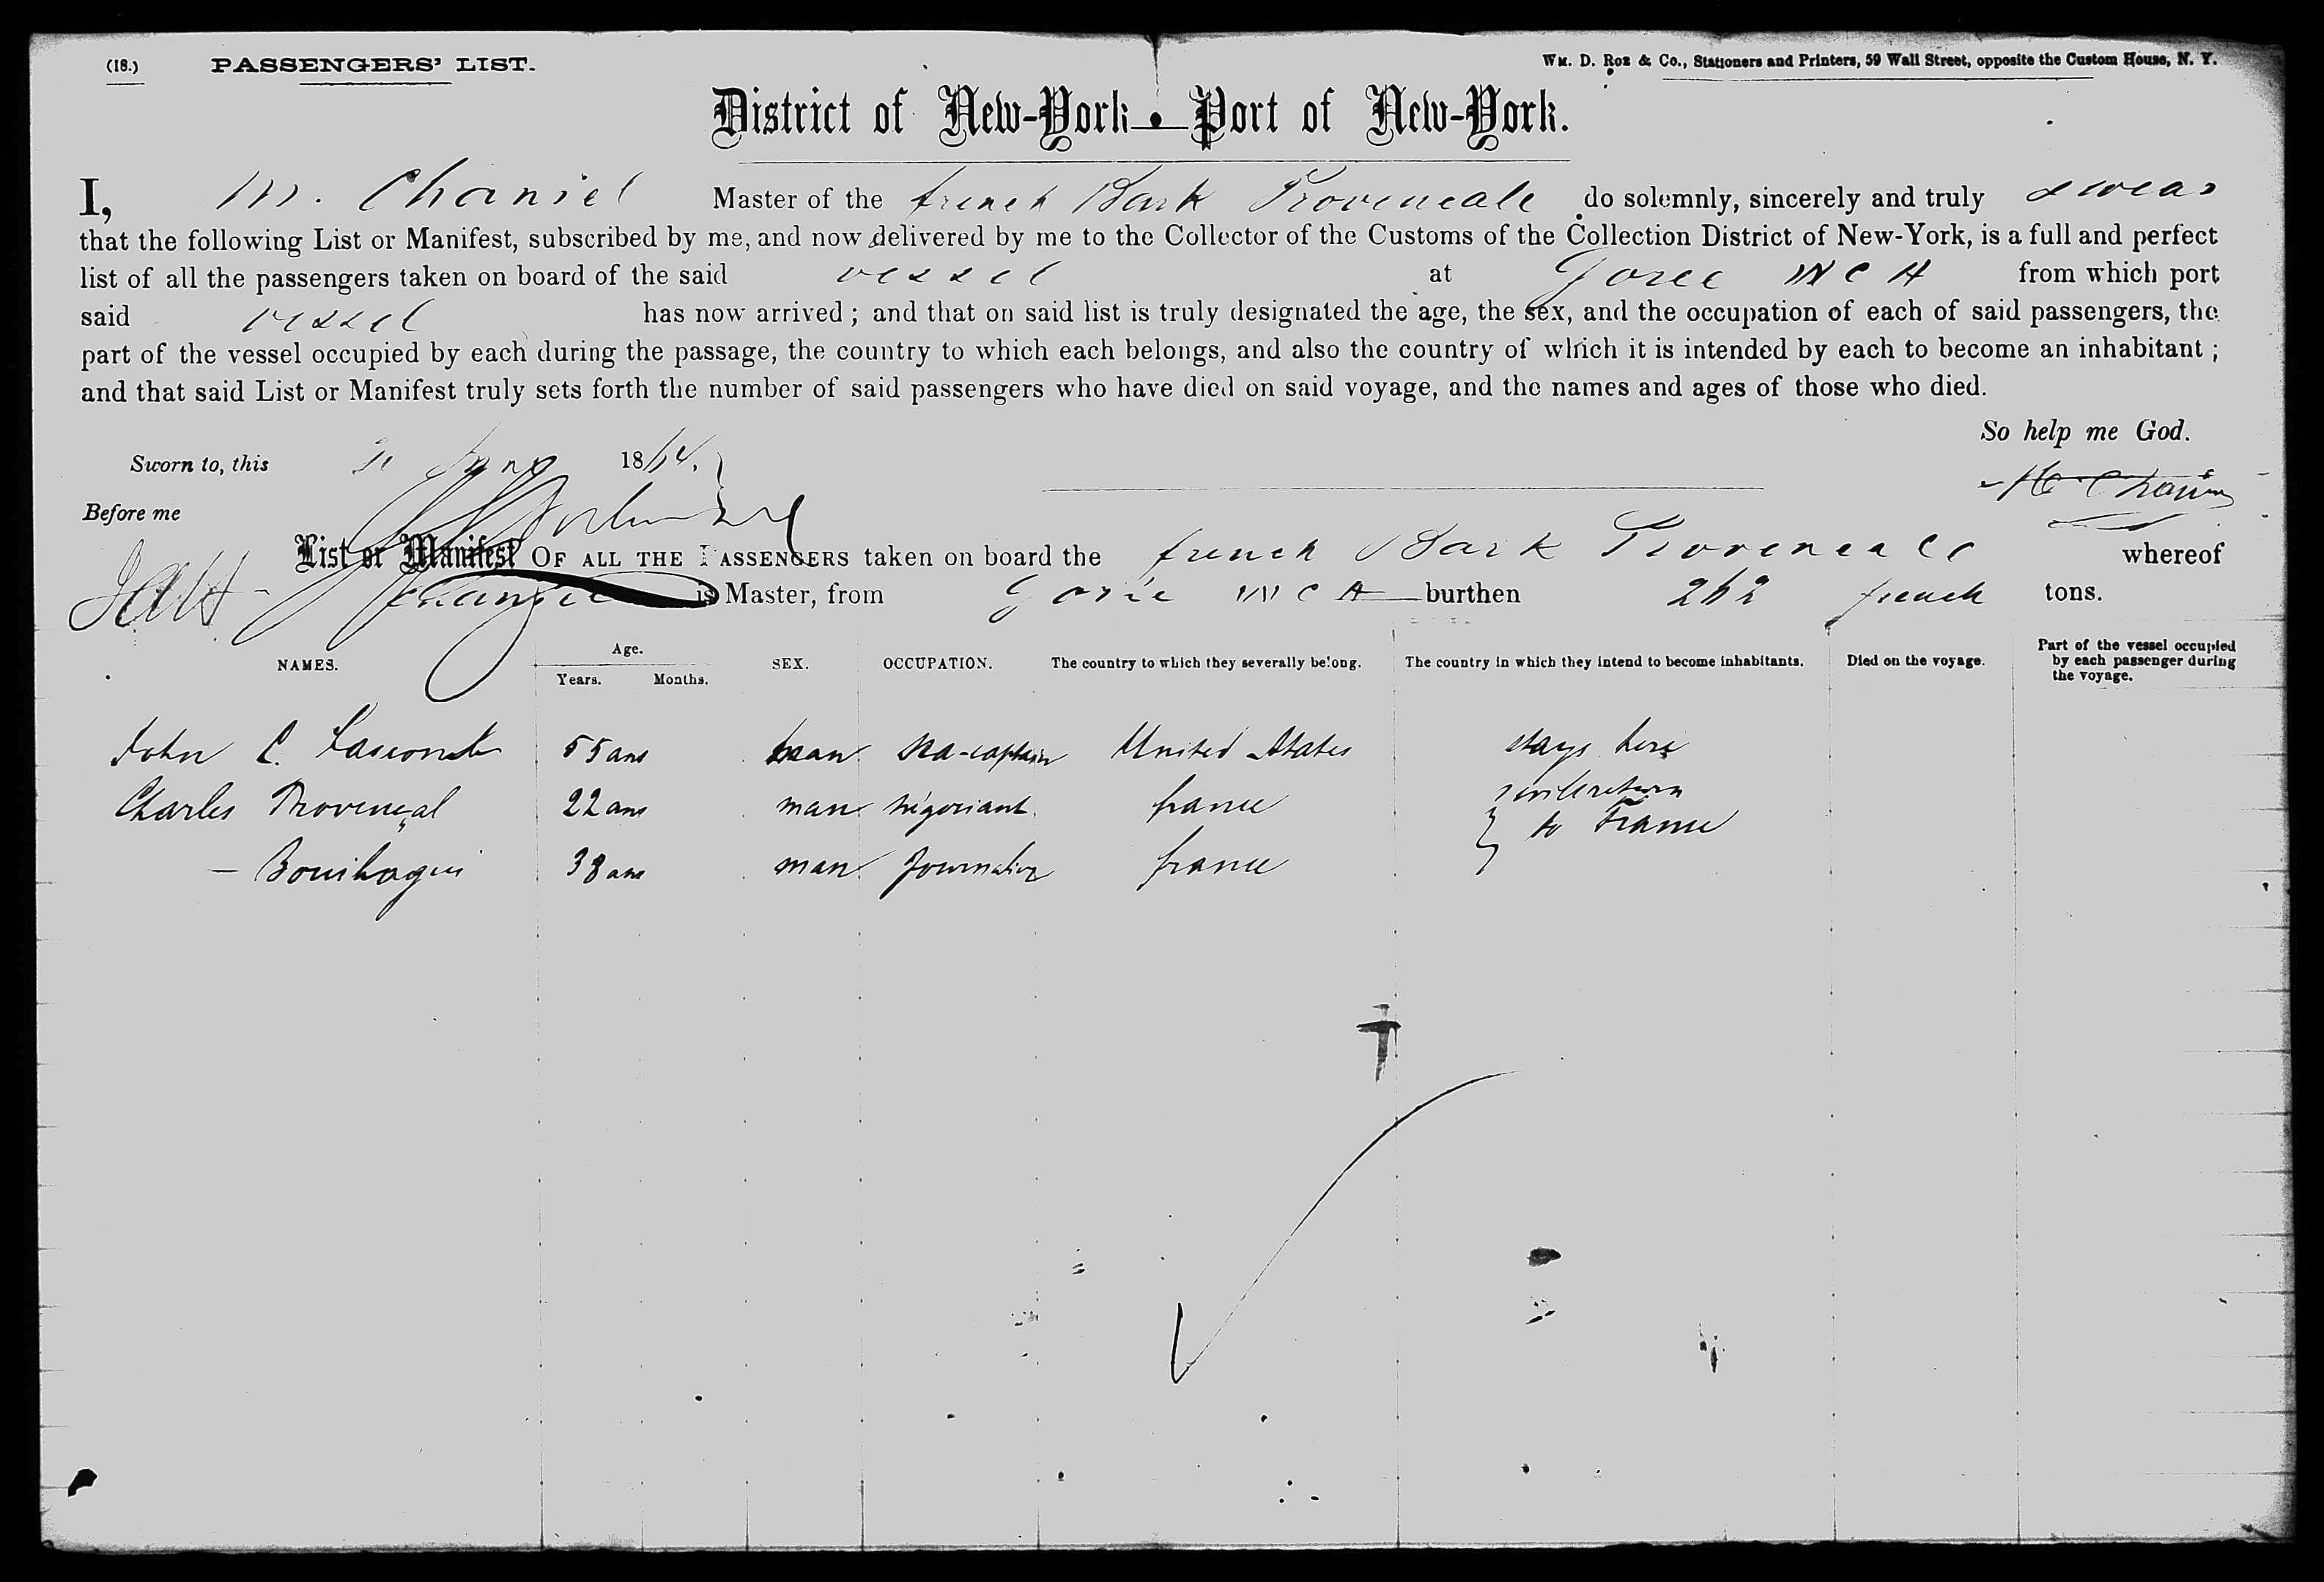 (18.) PASSENGERS' LIST. Wm. D. Roe & Co., Stationers and Printers, 59 Wall Street, opposite the Custom House, N. Y.
District of New-York—Port of New-York.
I, M. Chaniel Master of the french Bark Provencale do solemnly, sincerely and truly swear
that the following List or Manifest, subscribed by me, and now delivered by me to the Collector of the Customs of the Collection District of New-York, is a full and perfect
list of all the passengers taken on board of the said vessel at Goree W C A from which port
said vessel has now arrived; and that on said list is truly designated the age, the sex, and the occupation of each of said passengers, the
part of the vessel occupied by each during the passage, the country to which each belongs, and also the country of which it is intended by each to become an inhabitant;
and that said List or Manifest truly sets forth the number of said passengers who have died on said voyage, and the names and ages of those who died.
So help me God.
Sworn to, this 1864.
Before me
List or Manifest OF ALL THE PASSENGERS taken on board the french Bark Provencale whereof
is Master, from Gorée W C A burthen 262 french tons.
NAMES. Age. Years. Months. SEX. OCCUPATION. The country to which they severally belong. The country in which they intend to become inhabitants. Died on the voyage. Part of the vessel occupied by each passenger during the voyage.
John C. 55 ans man sea-captain United States stays here
Charles Provençal 22 ans man négociant france will return
to France
— 38 ans man france